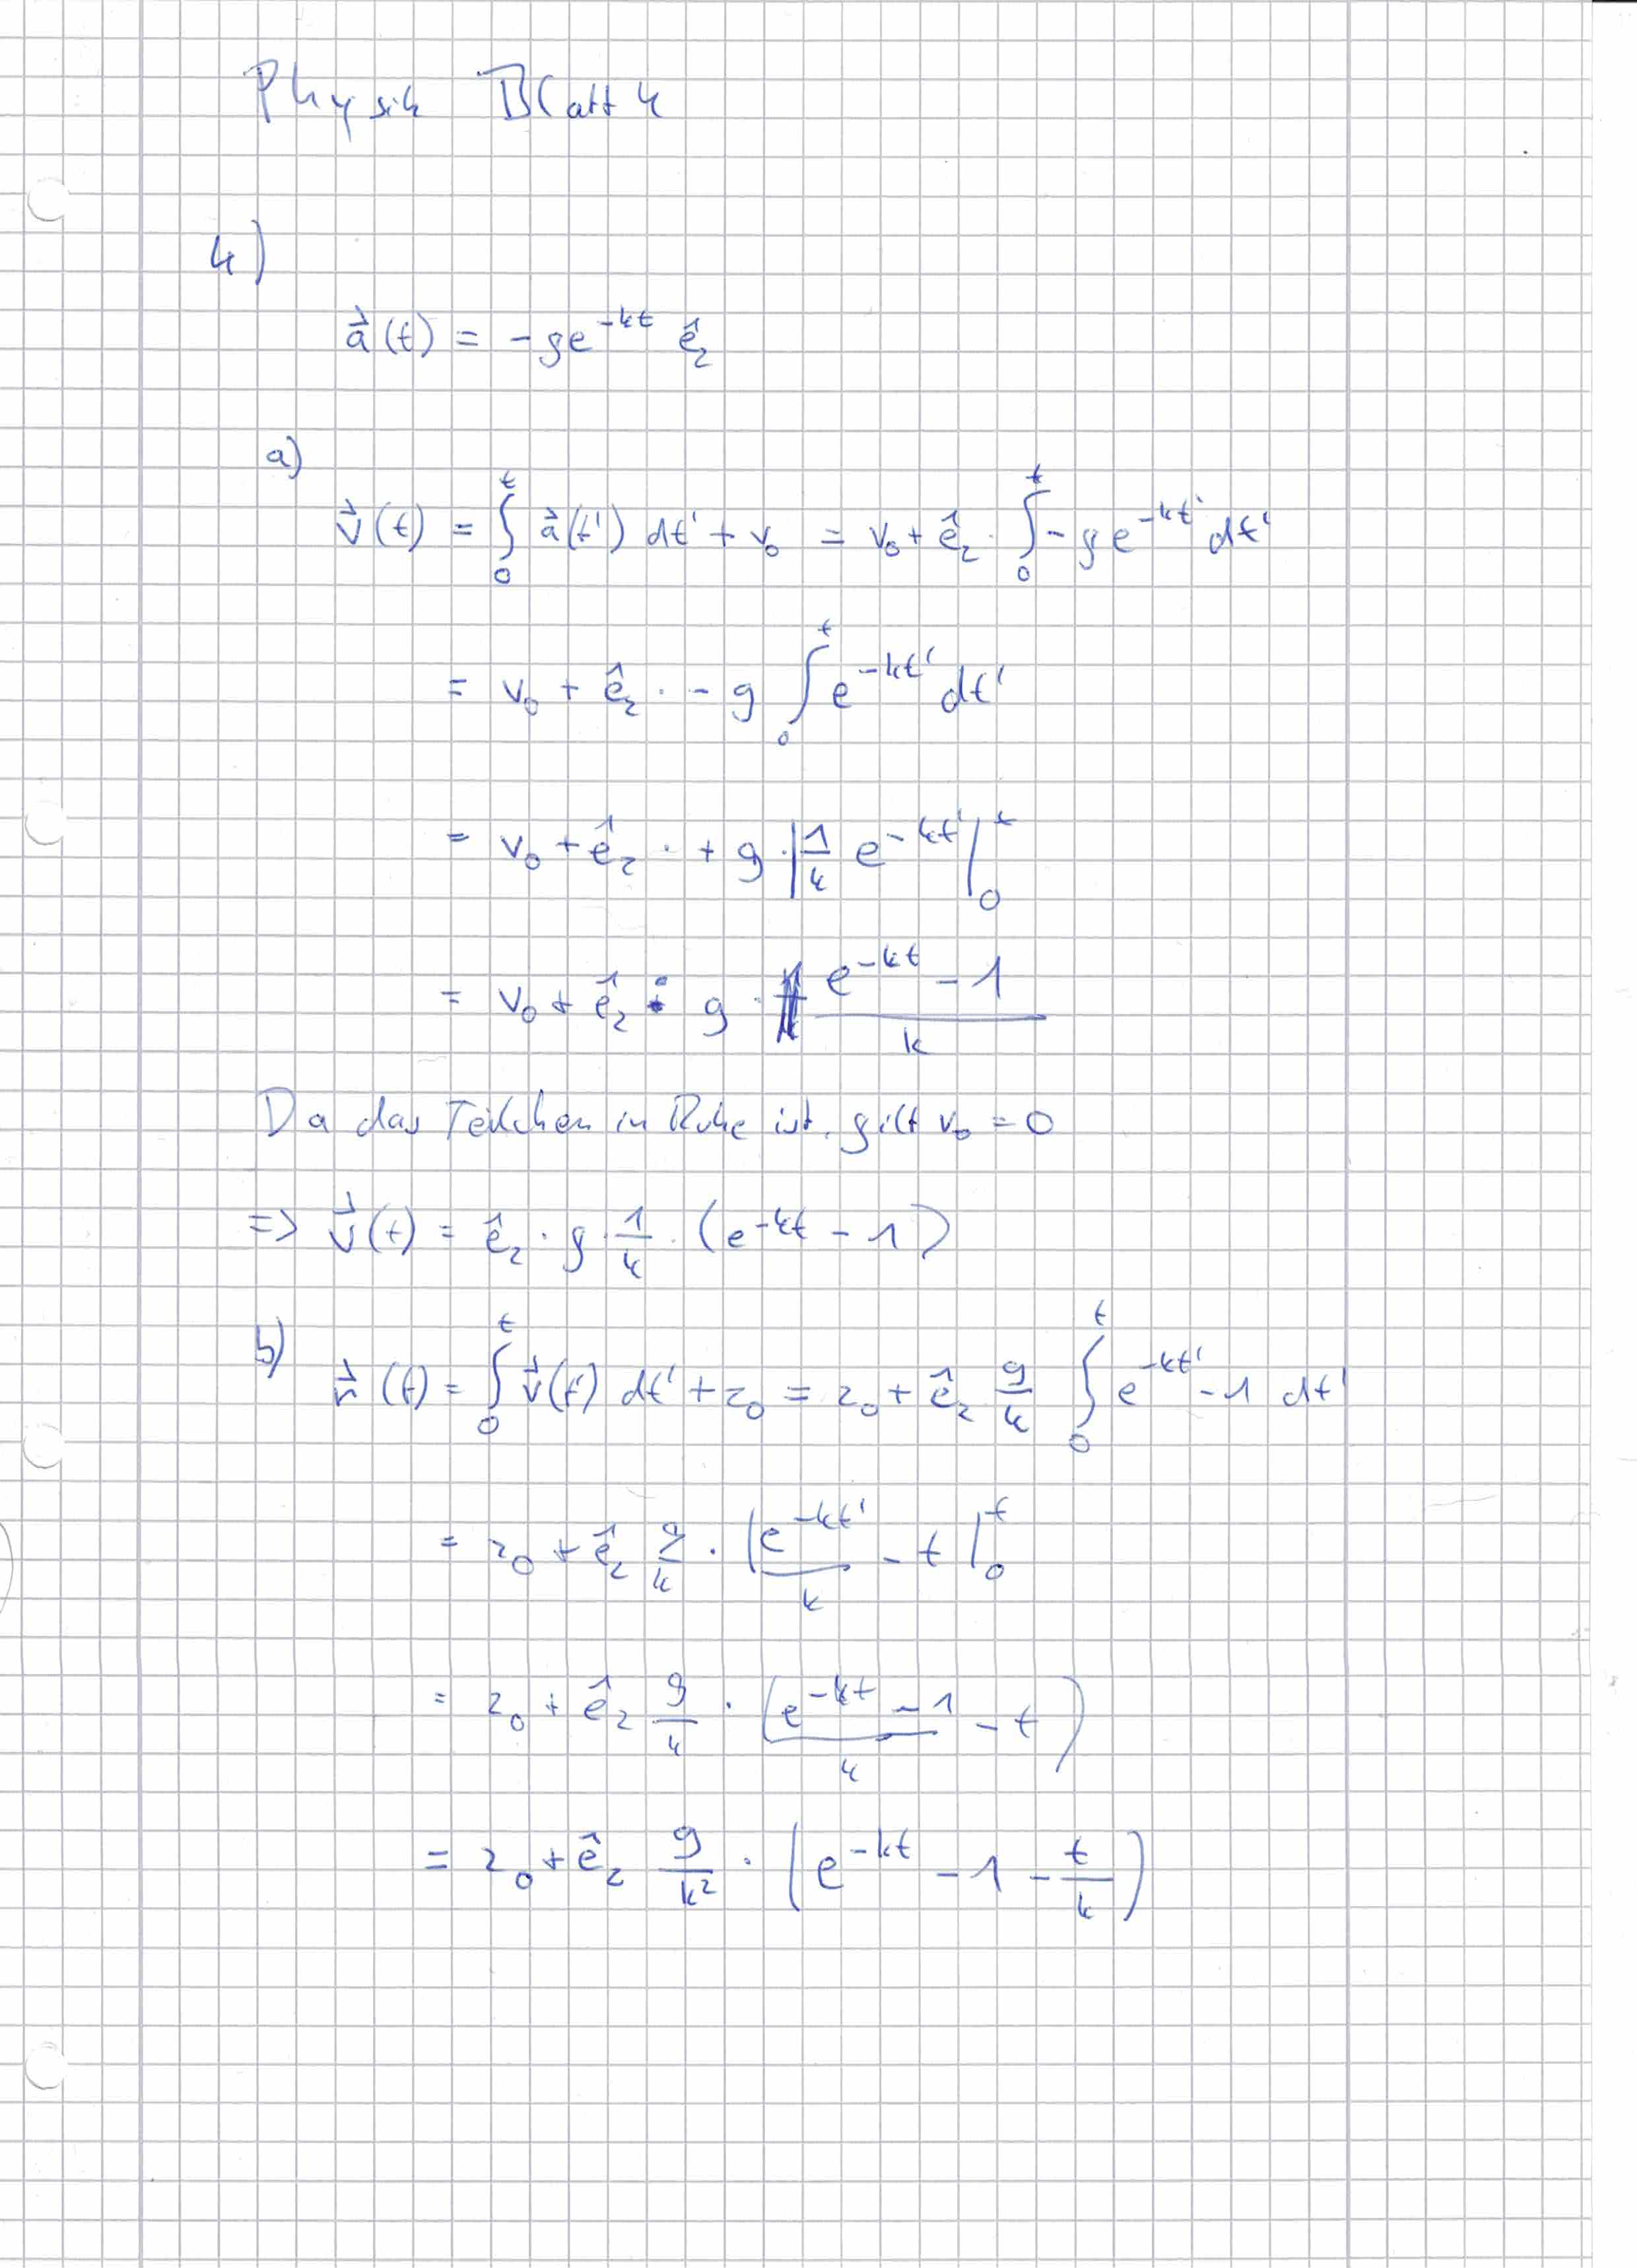 Physik Blatt 4
4)
a⃗(t) = -ge^{-kt} ê_z
a)
v⃗(t) = ∫_0^t a⃗(t') dt' + v_0 = v_0 + ê_z · ∫_0^t -ge^{-kt'} dt'
= v_0 + ê_z · -g ∫_0^t e^{-kt'} dt'
= v_0 + ê_z · +g · | 1/k e^{-kt'} |_0^t
= v_0 + ê_z · g · (e^{-kt} - 1)/k
Da das Teilchen in Ruhe ist, gilt v_0 = 0
=> v⃗(t) = ê_z · g · 1/k · (e^{-kt} - 1)
b) r⃗(t) = ∫_0^t v⃗(t') dt' + z_0 = z_0 + ê_z g/k ∫_0^t e^{-kt'} - 1 dt'
= z_0 + ê_z g/k · | e^{-kt'}/k - t |_0^t
= z_0 + ê_z g/k · ((e^{-kt} - 1)/k - t)
= z_0 + ê_z g/k² · (e^{-kt} - 1 - t/k)